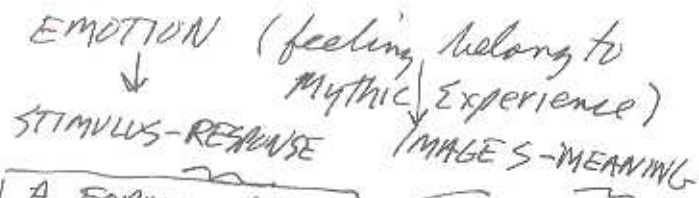 EMOTION (feeling belong to
Mythic Experience)
STIMULUS-RESPONSE IMAGES-MEANING
A